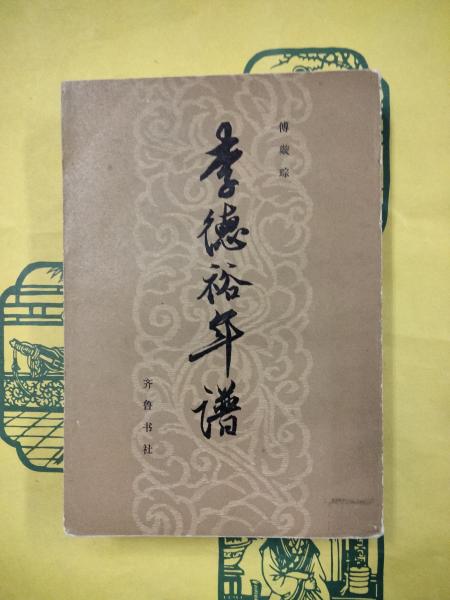 傅璇琮
李德裕年谱
齐鲁书社